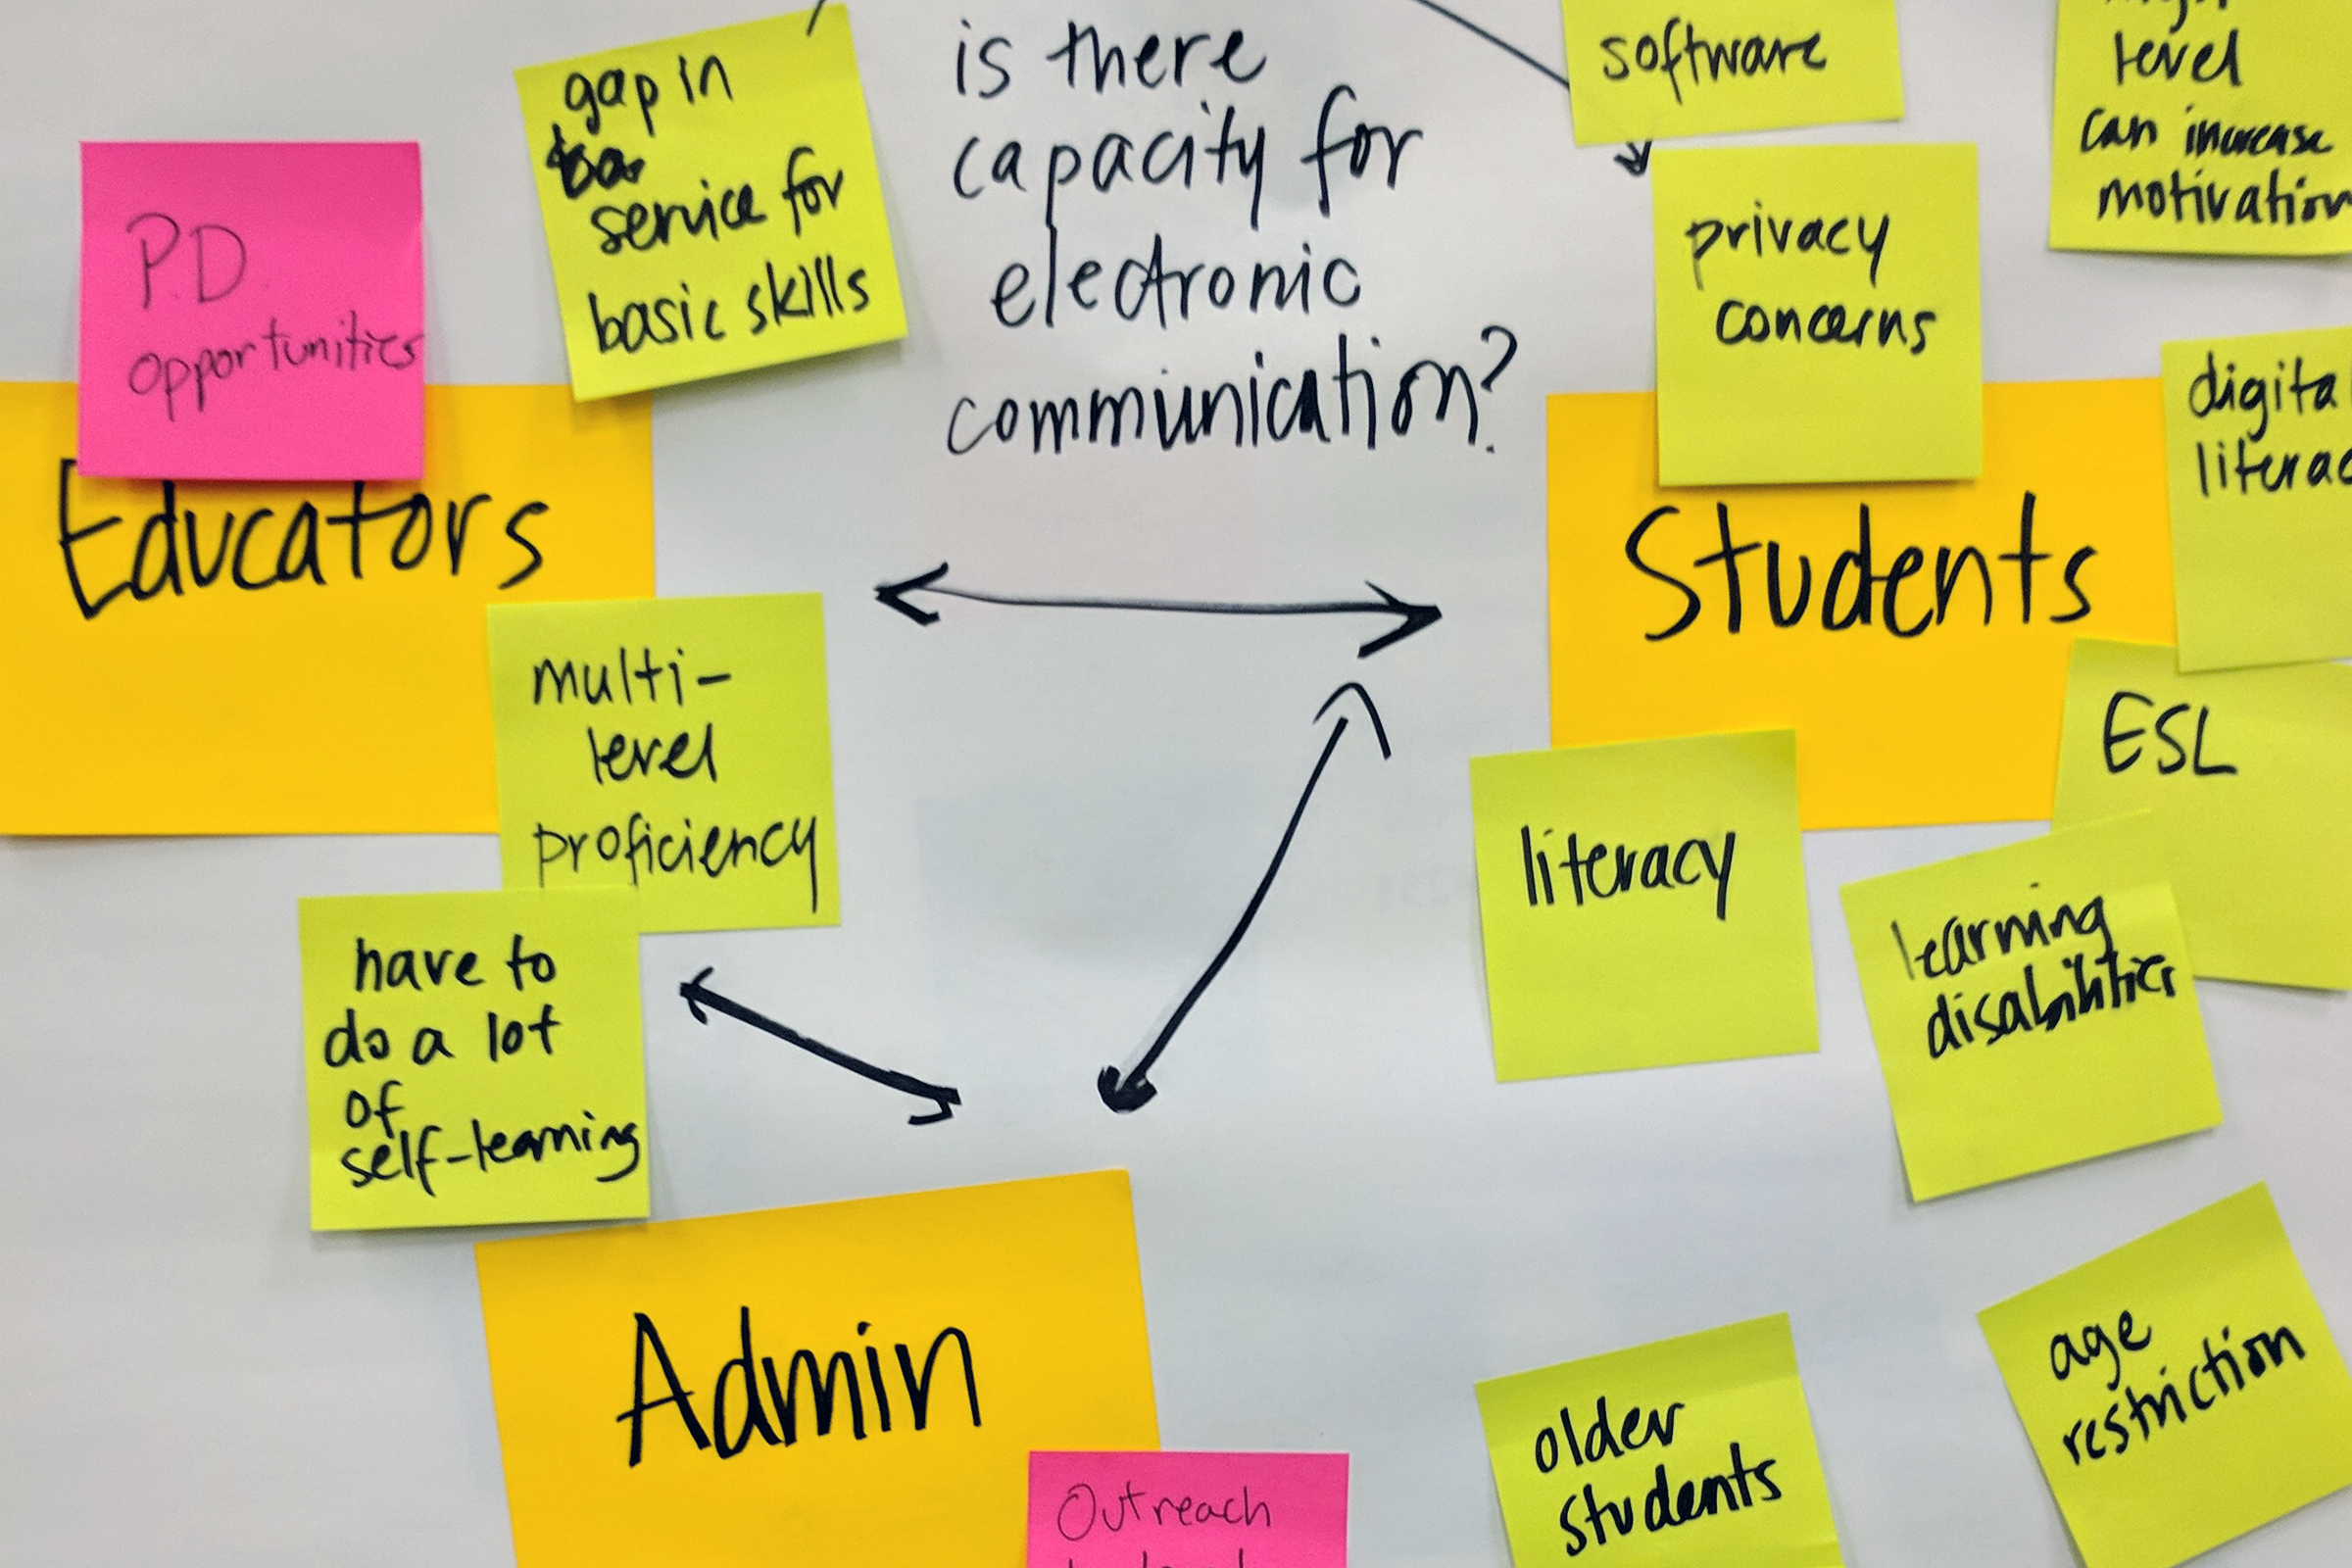 P.D.
opportunities
Educators
gap in
service for
basic skills
is there
capacity for
electronic
communication?
software
privacy
concerns
level
can increase
motivation
digital
Students
multi-
level
proficiency
have to
do a lot
of
self-learning
ESL
literacy
learning
disabilities
Admin
Outreach
older
students
age
restriction